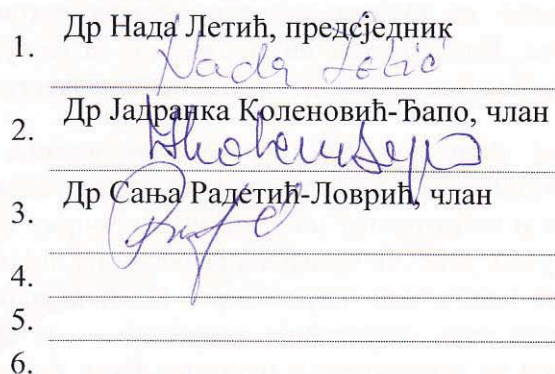 1. Др Нада Летић, предсједник
Nada Letić
2. Др Јадранка Коленовић-Ђапо, члан
3. Др Сања Радетић-Ловрић, члан
4.
5.
6.